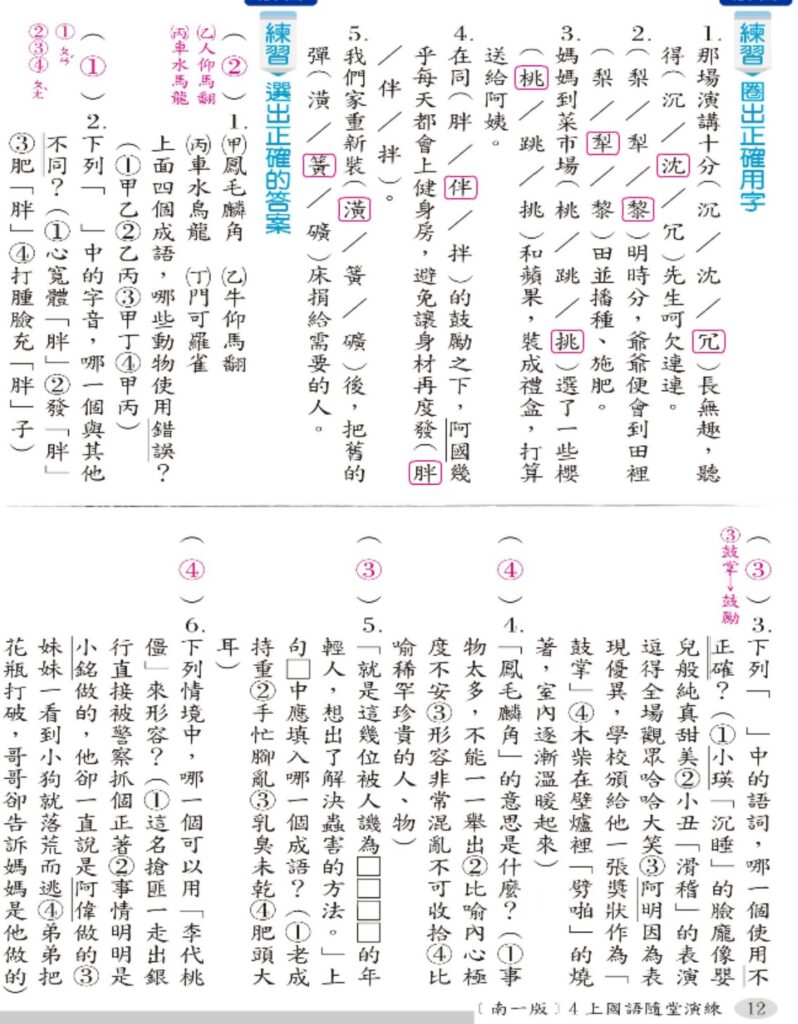 練習 圈出正確用字
1.那場演講十分(沉／沈／冗)長無趣，聽
得(沉／沈／冗)先生呵欠連連。
2.(梨／犁／黎)明時分，爺爺便會到田裡
(梨／犁／黎)田並播種、施肥。
3.媽媽到菜市場(桃／跳／挑)選了一些櫻
(桃／跳／挑)和蘋果，裝成禮盒，打算
送給阿姨。
4.在同(胖／伴／拌)的鼓勵之下，阿國幾
乎每天都會上健身房，避免讓身材再度發(胖
／伴／拌)。
5.我們家重新裝(潢／簧／礦)後，把舊的
彈(潢／簧／礦)床捐給需要的人。
練習 選出正確的答案
(②)1.(甲)鳳毛麟角 (乙)牛仰馬翻
(丙)車水鳥龍 (丁)門可羅雀
上面四個成語，哪些動物使用錯誤？
(①甲乙②乙丙③甲丁④甲丙)
(乙)人仰馬翻
(丙)車水馬龍
(①)2.下列「　」中的字音，哪一個與其他
不同？(①心寬體「胖」②發「胖」
③肥「胖」④打腫臉充「胖」子)
①ㄆㄢˊ
②③④ㄆㄤˋ
(③)3.下列「　」中的語詞，哪一個使用不
正確？(①小瑛「沉睡」的臉龐像嬰
兒般純真甜美②小丑「滑稽」的表演
逗得全場觀眾哈哈大笑③阿明因為表
現優異，學校頒給他一張獎狀作為「
鼓掌」④木柴在壁爐裡「劈啪」的燒
著，室內逐漸溫暖起來)
③鼓掌→鼓勵
(④)4.「鳳毛麟角」的意思是什麼？(①事
物太多，不能一一舉出②比喻內心極
度不安③形容非常混亂不可收拾④比
喻稀罕珍貴的人、物)
(③)5.「就是這幾位被人譏為□□□□的年
輕人，想出了解決蟲害的方法。」上
句□中應填入哪一個成語？(①老成
持重②手忙腳亂③乳臭未乾④肥頭大
耳)
(④)6.下列情境中，哪一個可以用「李代桃
僵」來形容？(①這名搶匪一走出銀
行直接被警察抓個正著②事情明明是
小銘做的，他卻一直說是阿偉做的③
妹妹一看到小狗就落荒而逃④弟弟把
花瓶打破，哥哥卻告訴媽媽是他做的)
〔南一版〕4上國語隨堂演練 12